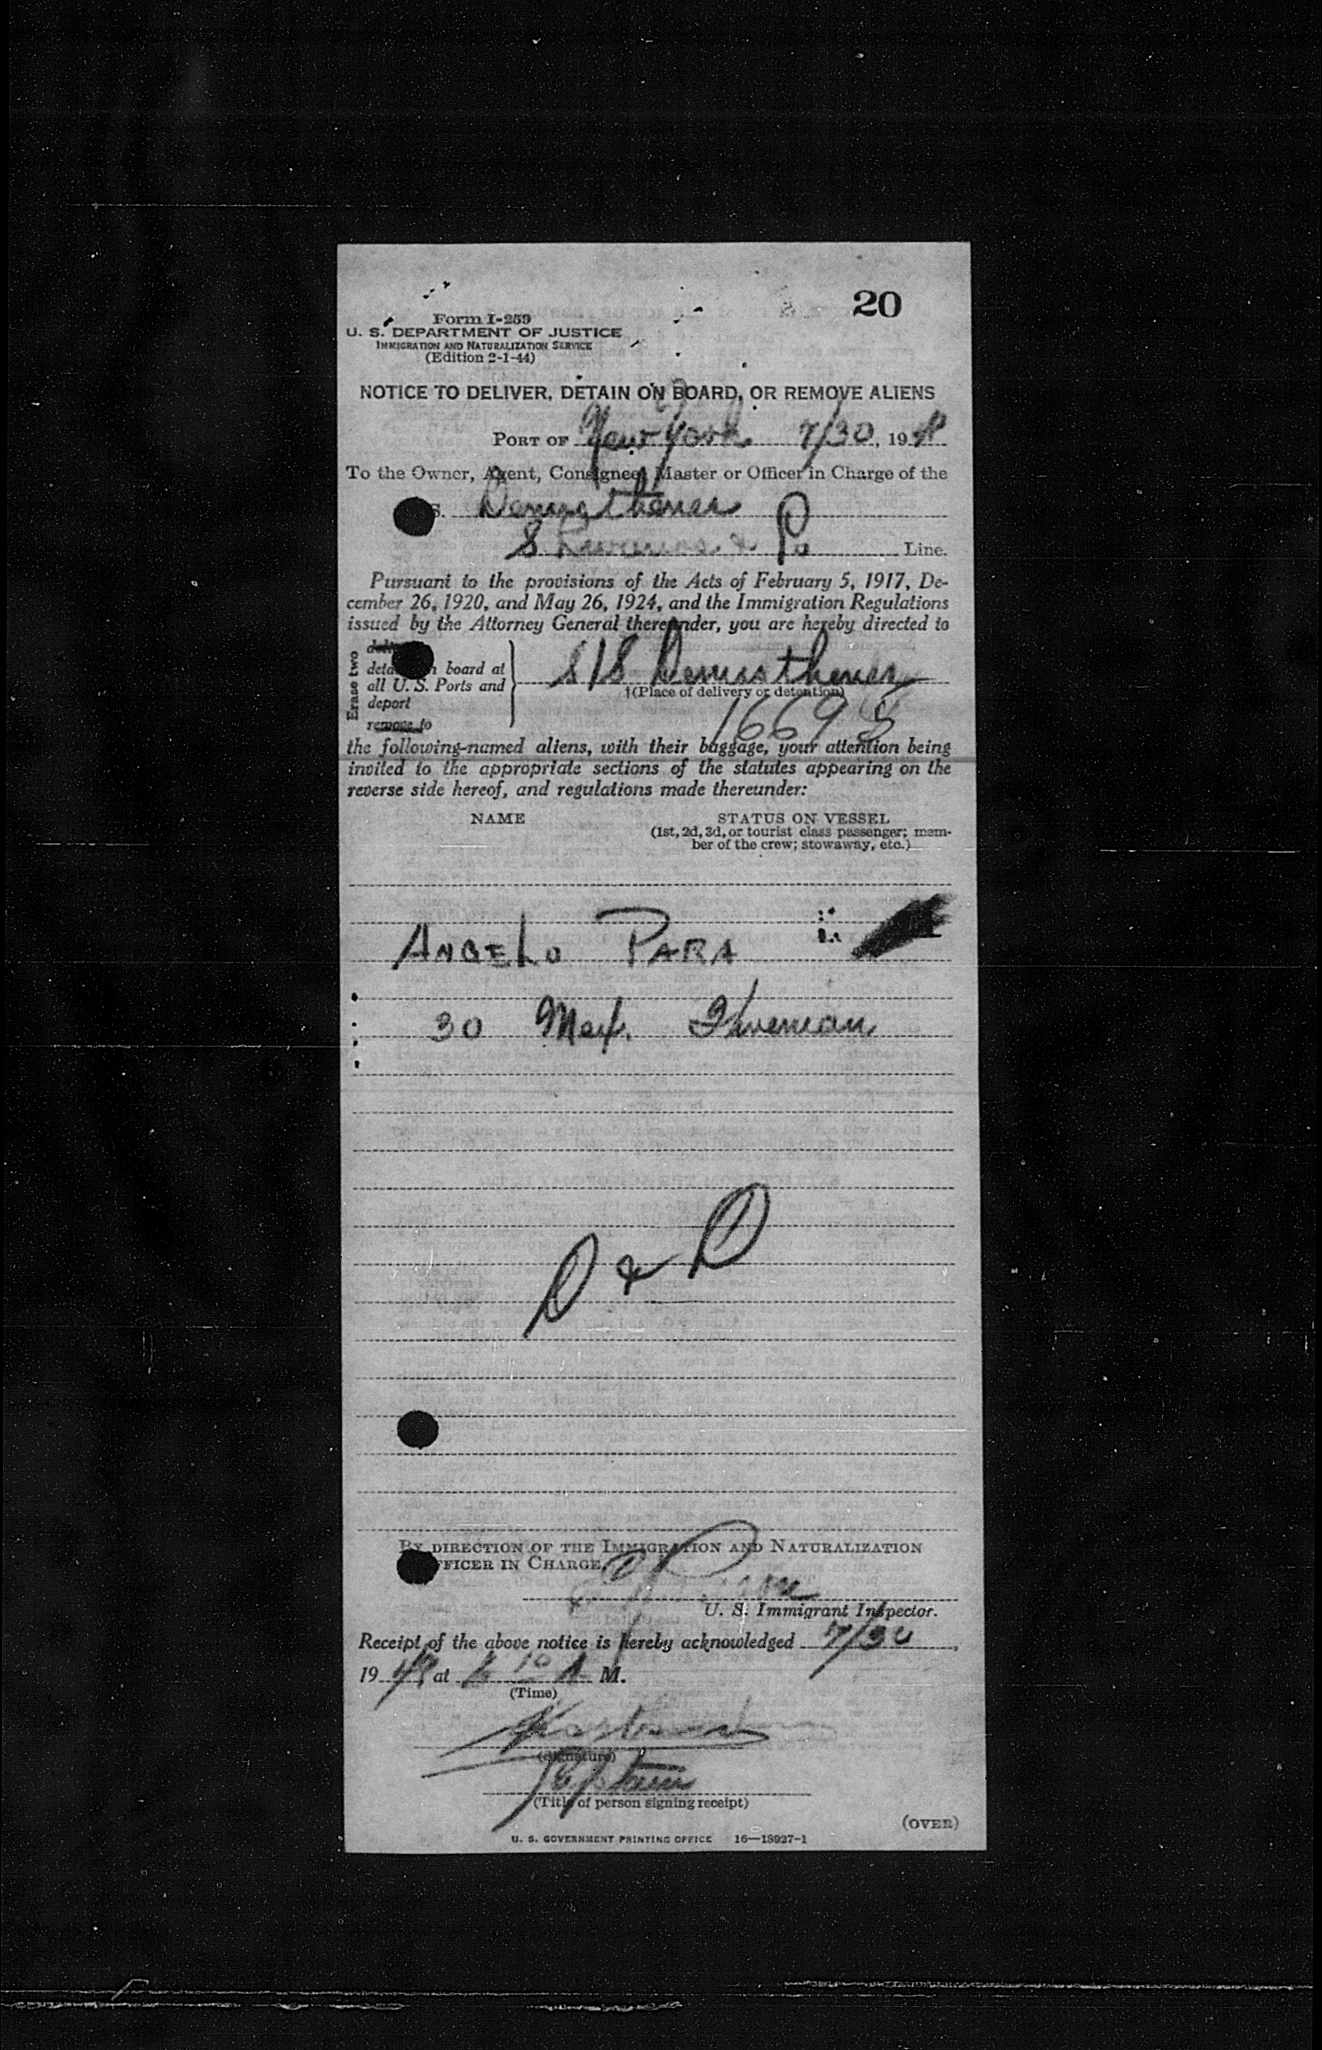 20
Form I-259
U. S. DEPARTMENT OF JUSTICE
IMMIGRATION AND NATURALIZATION SERVICE
(Edition 2-1-44)
NOTICE TO DELIVER, DETAIN ON BOARD, OR REMOVE ALIENS
PORT OF New York 7/30, 1948
To the Owner, Agent, Consignee, Master or Officer in Charge of the
S. Demosthenes
Line.
Pursuant to the provisions of the Acts of February 5, 1917, De-
cember 26, 1920, and May 26, 1924, and the Immigration Regulations
issued by the Attorney General thereunder, you are hereby directed to
Erase two
board at
all U. S. Ports and
deport
remove to
S/S Demosthenes
†(Place of delivery or detention)
16698
the following-named aliens, with their baggage, your attention being
invited to the appropriate sections of the statutes appearing on the
reverse side hereof, and regulations made thereunder:
NAME STATUS ON VESSEL
(1st, 2d, 3d, or tourist class passenger; mem-
ber of the crew; stowaway, etc.)
ANGELO PARA
30 Mex. Fireman
D & D
BY DIRECTION OF THE IMMIGRATION AND NATURALIZATION
OFFICER IN CHARGE.
U. S. Immigrant Inspector.
Receipt of the above notice is hereby acknowledged 7/30,
1948 at 10 A. M.
(Time)
(Signature)
Captain
(Title of person signing receipt)
(OVER)
U. S. GOVERNMENT PRINTING OFFICE 16—18927-1